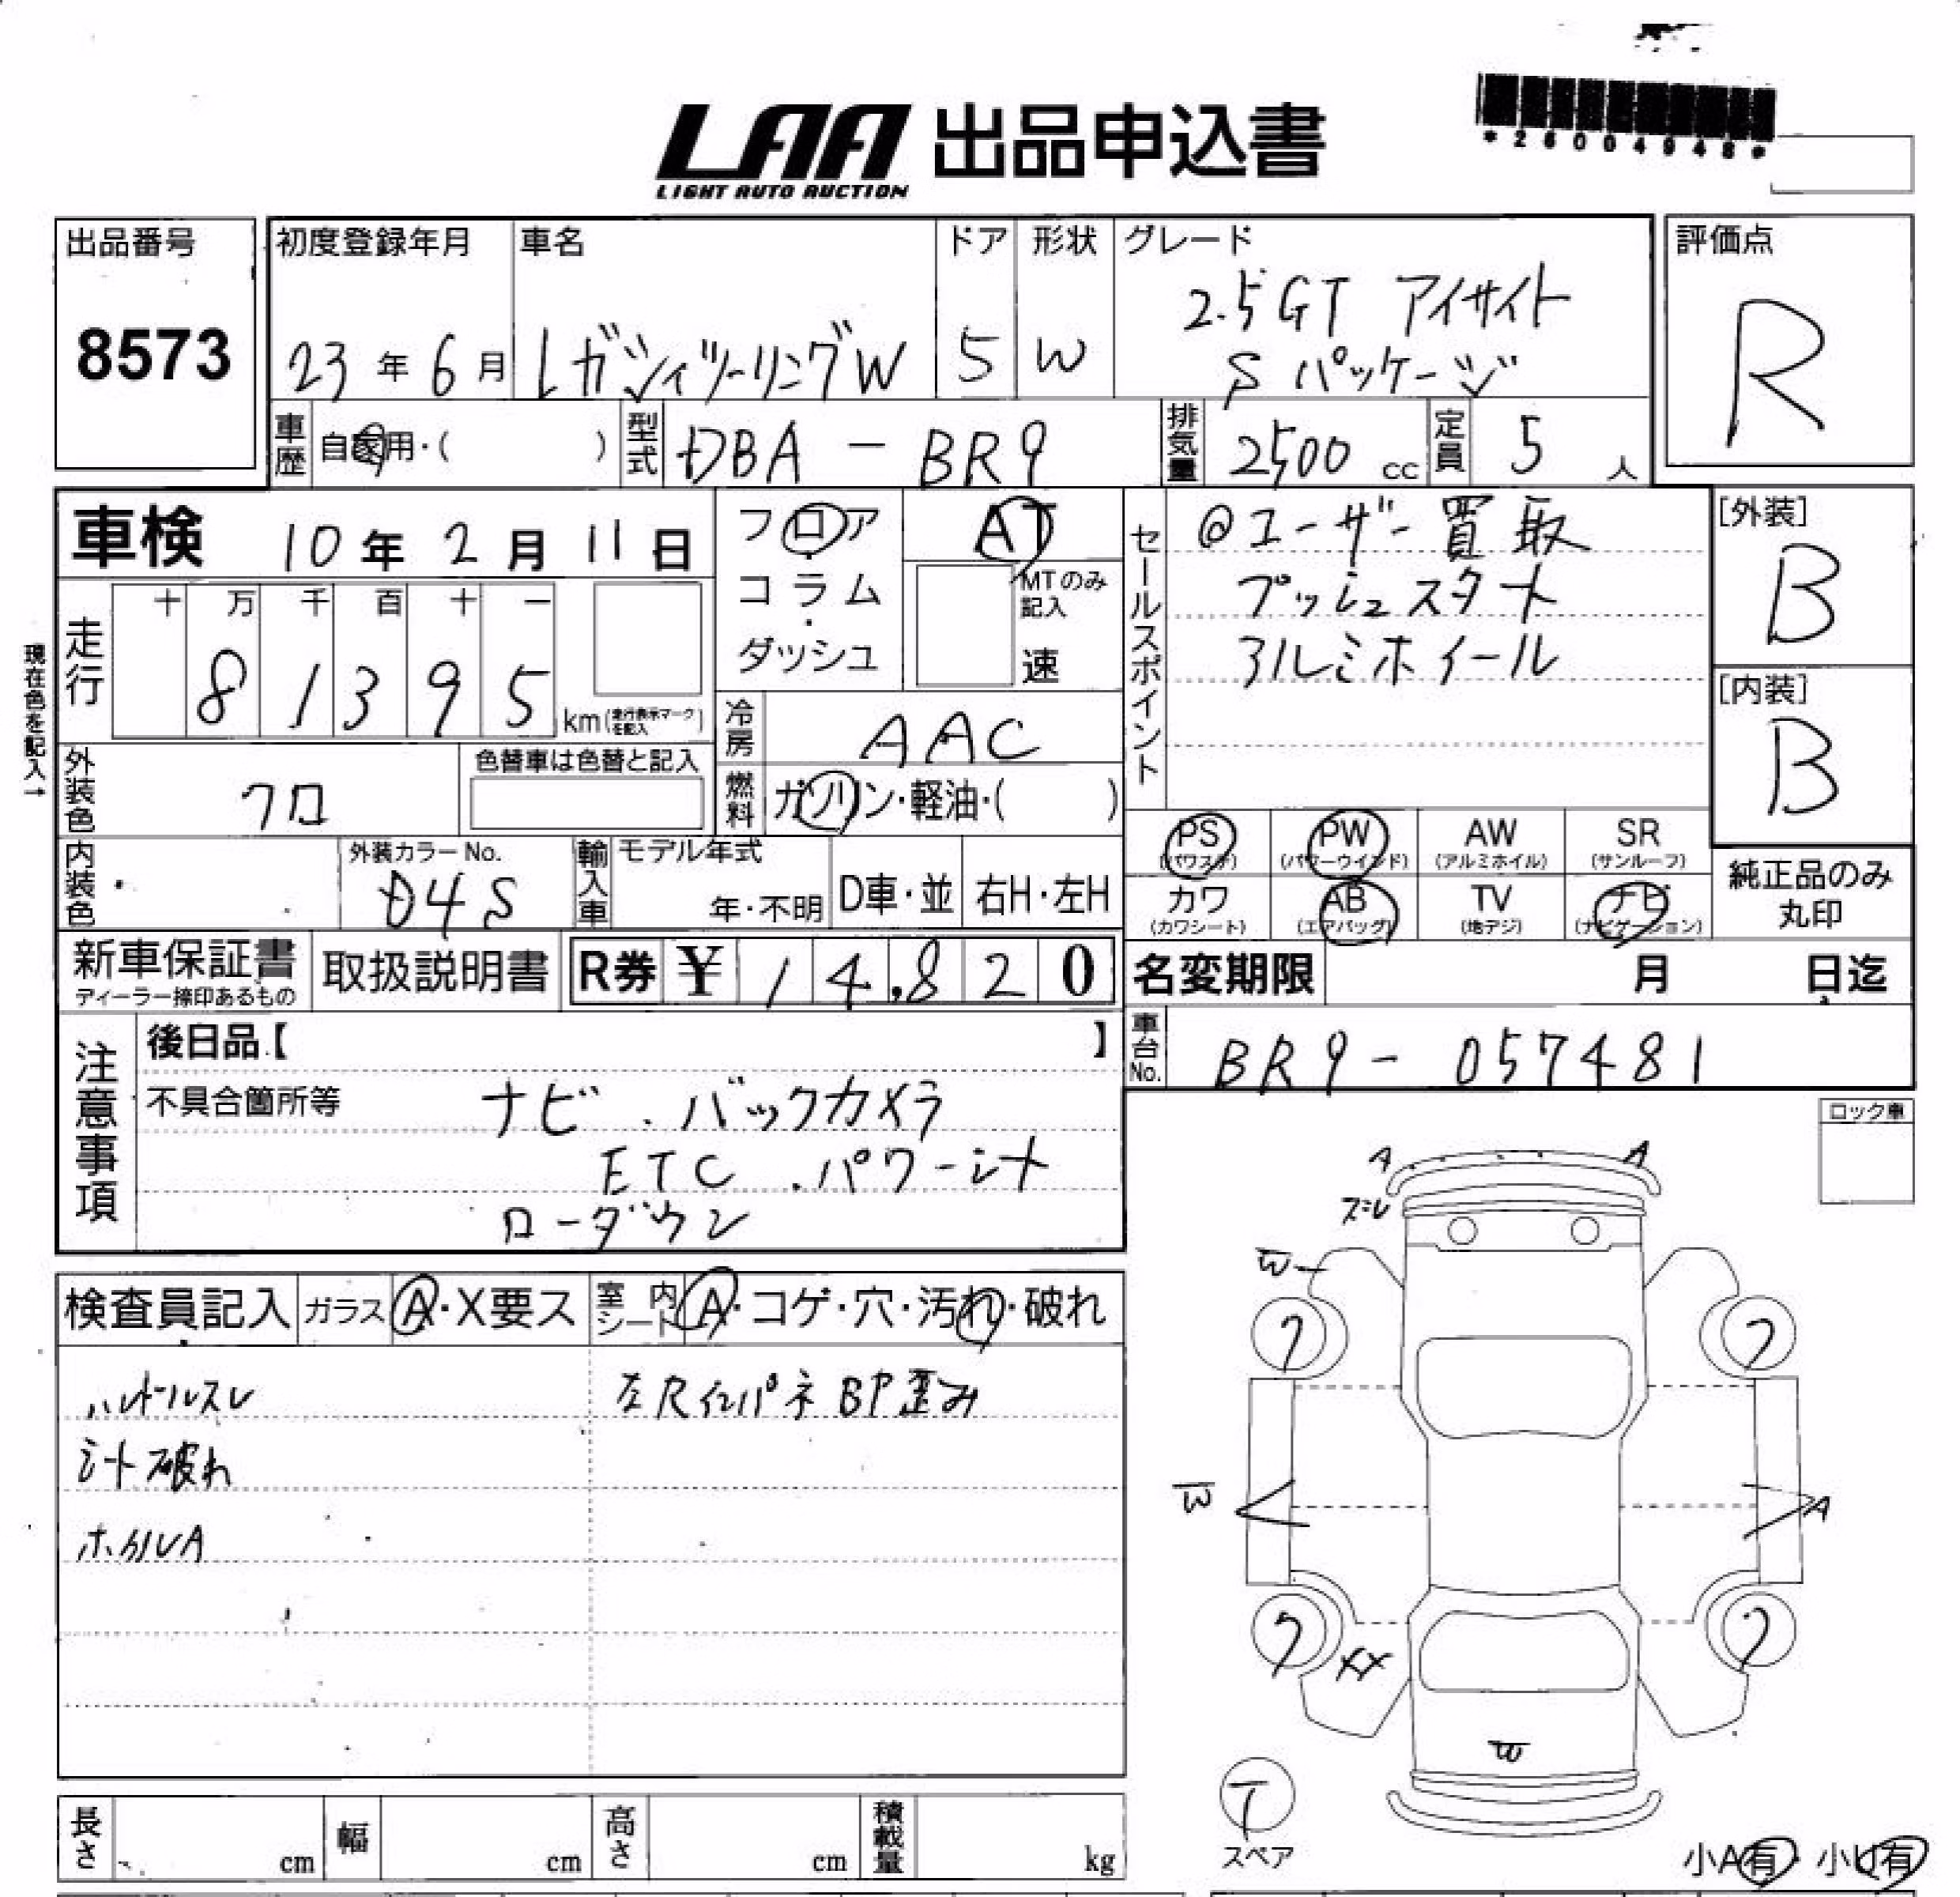 *26004948*
LAA 出品申込書
LIGHT AUTO AUCTION
出品番号 8573
初度登録年月 23年6月
車名 レガシィツーリングW
ドア 5
形状 W
グレード 2.5GT アイサイト
Sパッケージ
評価点 R
車歴 自家用・( )
型式 DBA-BR9
排気量 2500cc
定員 5人
車検 10年2月11日
フロア・コラム・ダッシュ
AT
MTのみ記入
速
セールスポイント
@ユーザー買取
プッシュスタート
アルミホイール
[外装] B
[内装] B
現在色を記入→
走行 十万千百十一
81395 km(走行表示マークを記入)
冷房 AAC
燃料 ガソリン・軽油・( )
外装色 クロ
色替車は色替と記入
内装色
外装カラーNo. D4S
輸入車 モデル年式
年・不明
D車・並
右H・左H
PS (パワステ)
PW (パワーウインド)
AW (アルミホイル)
SR (サンルーフ)
カワ (カワシート)
AB (エアバッグ)
TV (地デジ)
ナビ (ナビゲーション)
純正品のみ
丸印
新車保証書
ディーラー捺印あるもの
取扱説明書
R券 ¥14,820
名変期限 月 日迄
車台No. BR9-057481
注意事項
後日品【 】
不具合箇所等
ナビ.バックカメラ
ETC.パワーシート
ローダウン
ロック車
検査員記入
ガラス A・X要ス
室内シート A・コゲ・穴・汚れ・破れ
ハンドルスレ
シート破れ
ホイルA
左Rインパネ BP歪み
A
A
ズレ
W
フ
フ
W
A
フ
フ
XX
W
T
スペア
小A有・小U有
長さ cm
幅 cm
高さ cm
積載量 kg